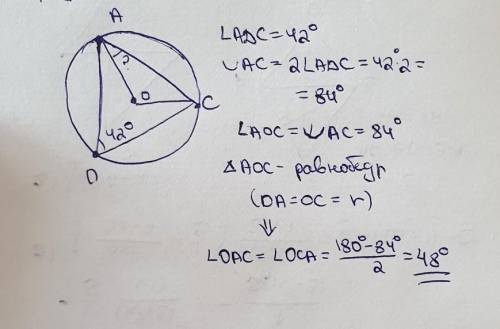 A
?
O
C
42°
D
∠ADC = 42°
◡AC = 2∠ADC = 42°·2 =
= 84°
∠AOC = ◡AC = 84°
△AOC - равнобедр
(OA = OC = r)
⇓
∠OAC = ∠OCA = (180° - 84°)/2 = 48°